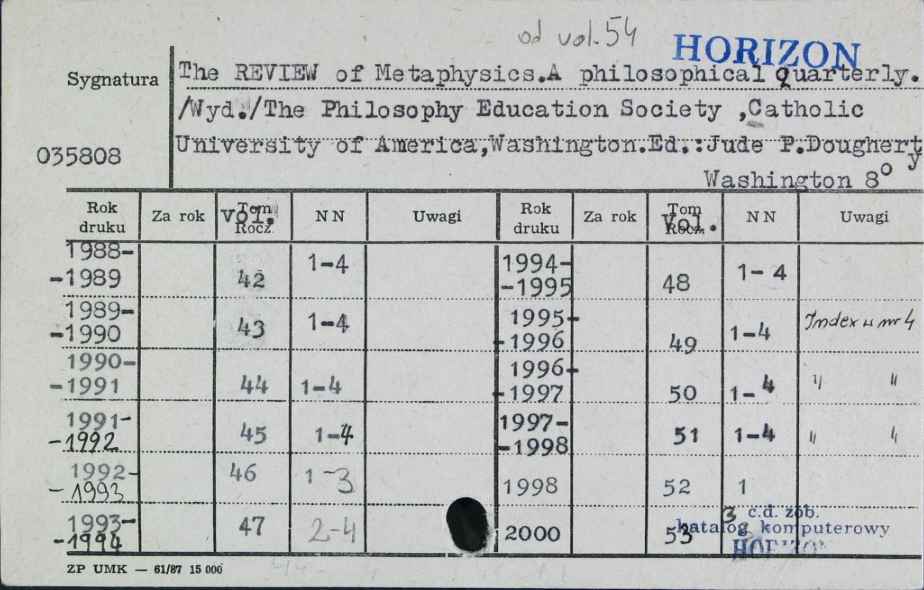 od vol. 54
HORIZON
Sygnatura
The REVIEW of Metaphysics.A philosophical quarterly.
/Wyd./The Philosophy Education Society ,Catholic
University of America,Washington.Ed.:Jude P.Dougherty
035808
Washington 8°
Rok druku Za rok Tom Rocz. vol. NN Uwagi Rok druku Za rok Tom Rocz. vol. NN Uwagi
1988--1989 42 1-4 1994--1995 48 1-4
1989--1990 43 1-4 1995--1996 49 1-4 Index w nr 4
1990--1991 44 1-4 1996--1997 50 1-4 " "
1991--1992 45 1-4 1997--1998 51 1-4 " "
1992--1993 46 1-3 1998 52 1
1993--1994 47 2-4 2000 53 3
c.d. zob.
katalog komputerowy
HORIZON
ZP UMK — 61/87 15 000